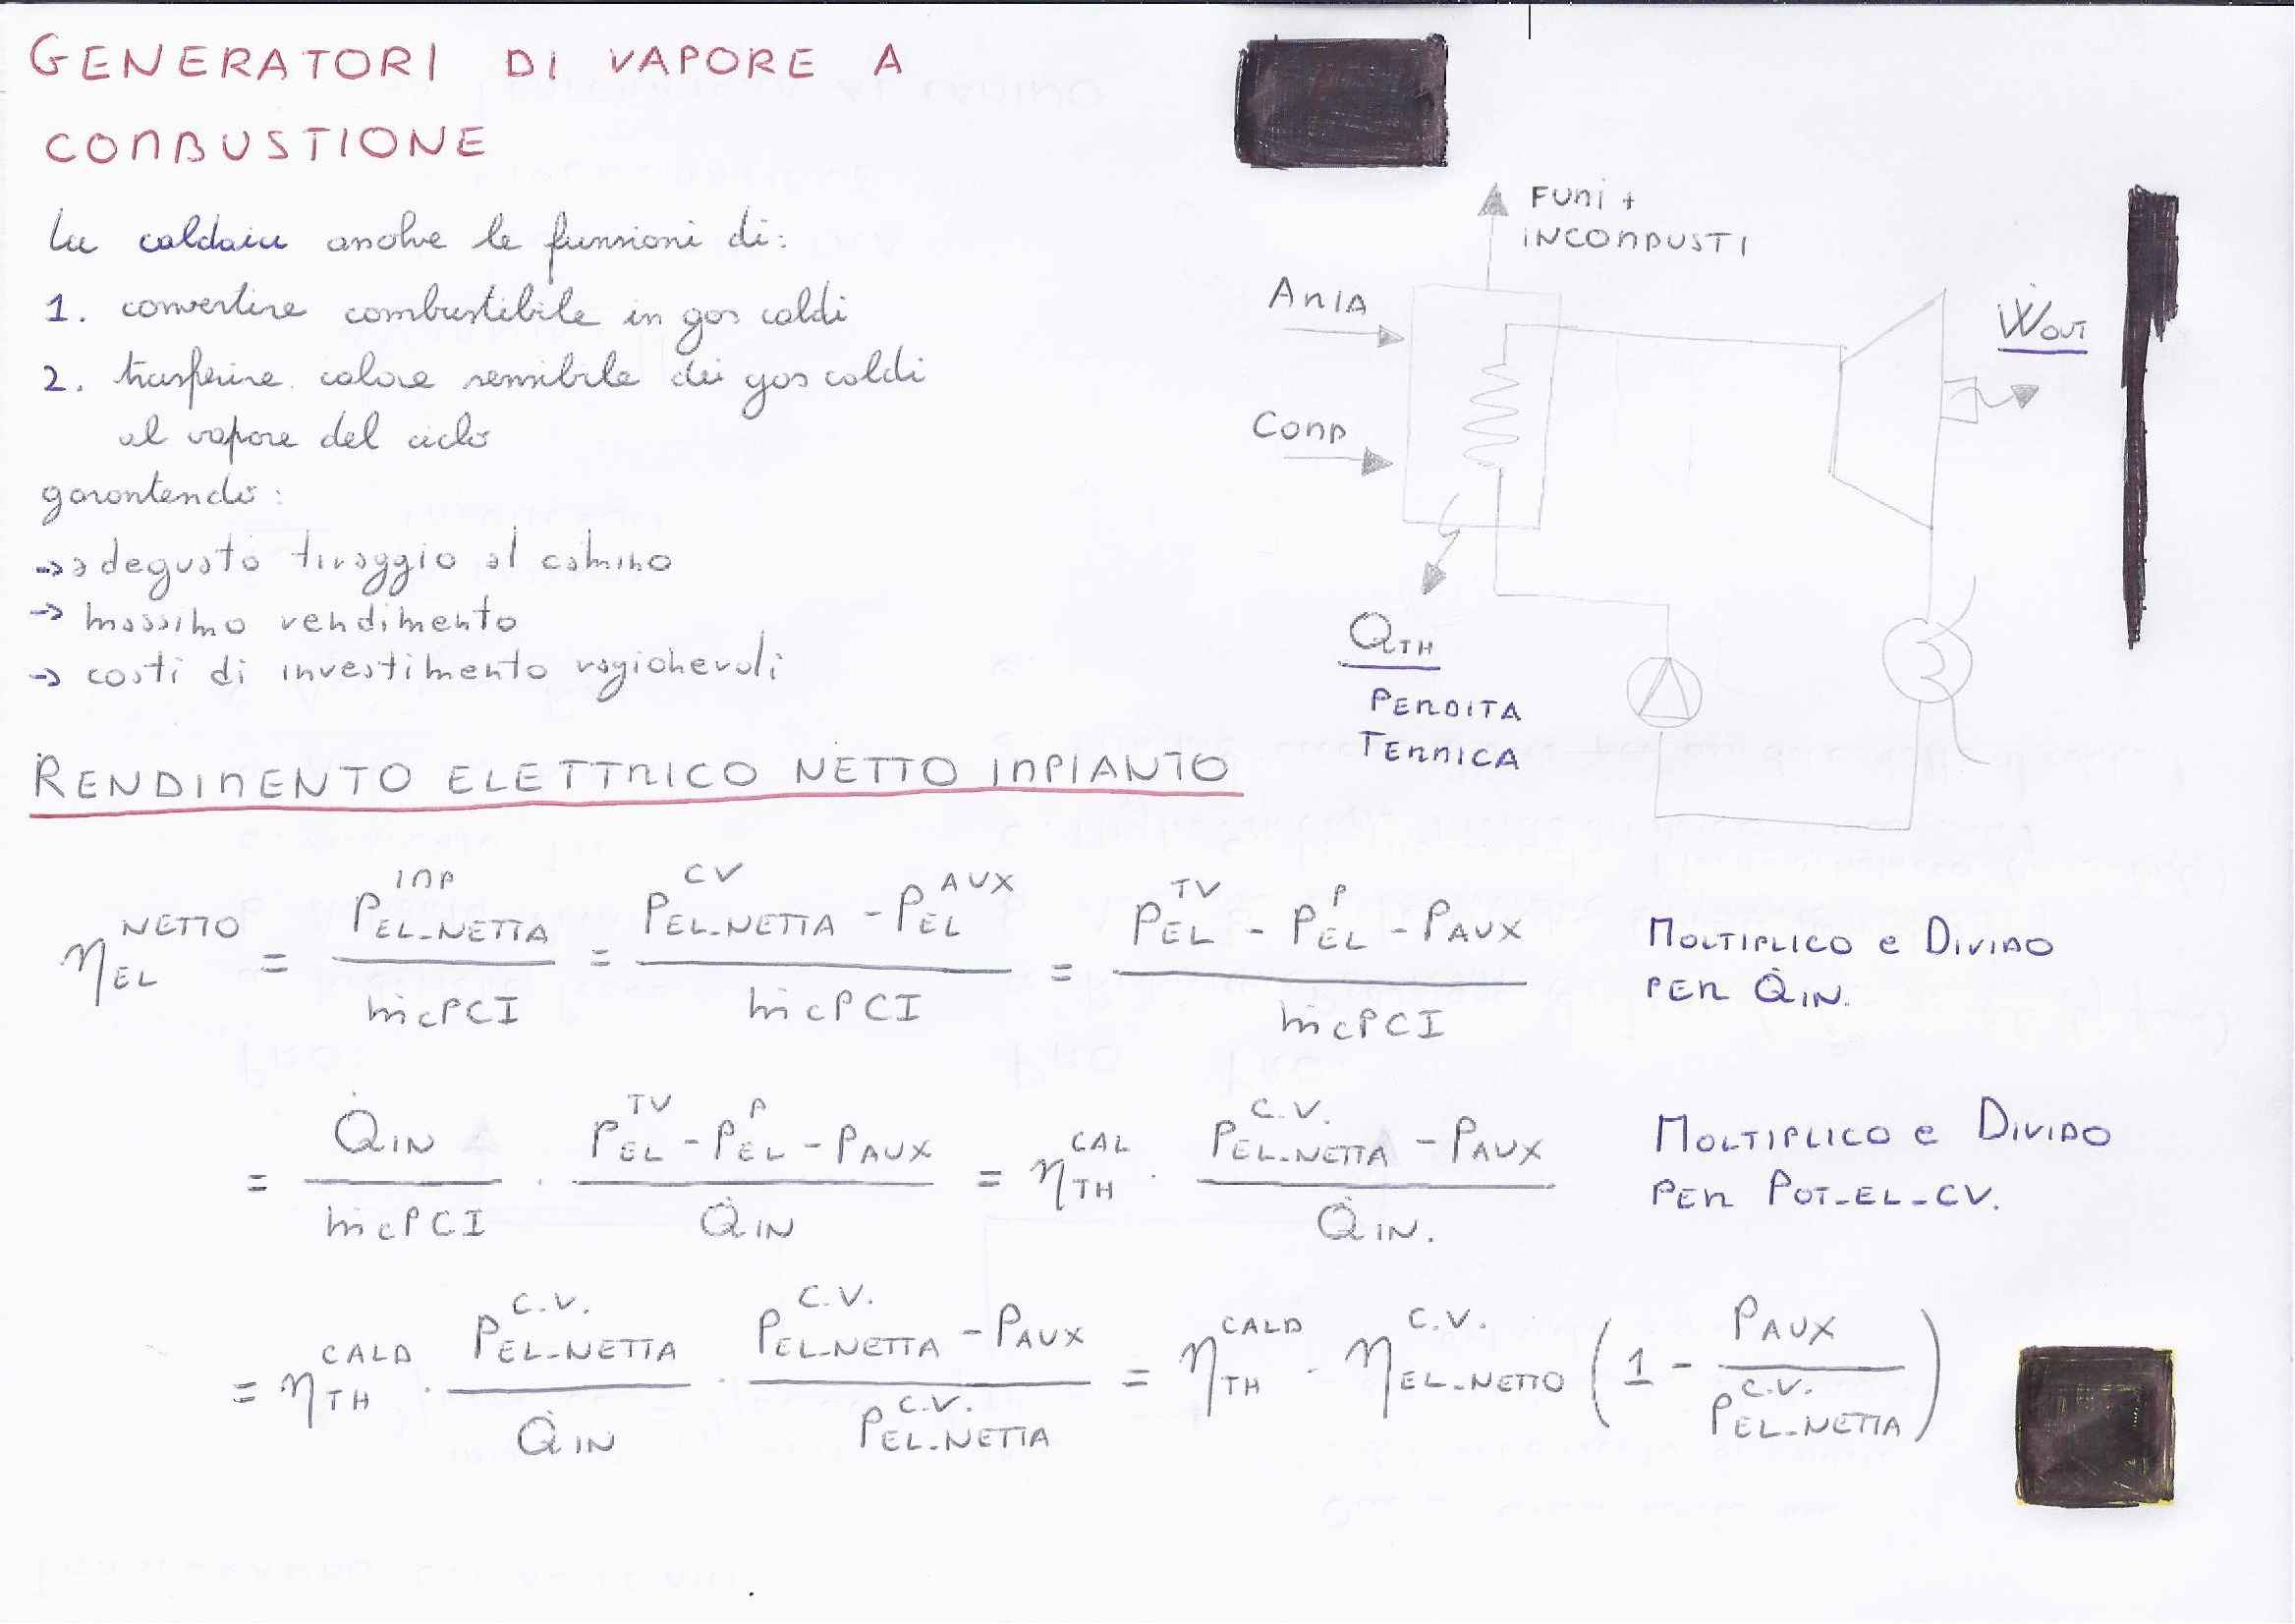 GENERATORI DI VAPORE A
COMBUSTIONE
La caldaia assolve le funzioni di:
1. convertire combustibile in gas caldi
2. trasferire calore sensibile dei gas caldi
al vapore del ciclo
garantendo:
→ adeguato tiraggio al camino
→ massimo rendimento
→ costi di investimento ragionevoli
FUMI +
INCOMBUSTI
ARIA
COMB
Ẇ_OUT
Q_TH
PERDITA
TERMICA
RENDIMENTO ELETTRICO NETTO IMPIANTO
η_EL^NETTO = P_EL-NETTA^IMP / ṁcPCI = (P_EL-NETTA^CV - P_EL^AUX) / ṁcPCI = (P_EL^TV - P_EL^P - P_AUX) / ṁcPCI
MOLTIPLICO e DIVIDO
PER Q̇_IN.
= Q̇_IN / ṁcPCI · (P_EL^TV - P_EL^P - P_AUX) / Q̇_IN = η_TH^CAL · (P_EL-NETTA^C.V. - P_AUX) / Q̇_IN.
MOLTIPLICO e DIVIDO
PER POT-EL-CV.
= η_TH^CALD · P_EL-NETTA^C.V. / Q̇_IN · (P_EL-NETTA^C.V. - P_AUX) / P_EL-NETTA^C.V. = η_TH^CALD · η_EL-NETTO^C.V. (1 - P_AUX / P_EL-NETTA^C.V.)